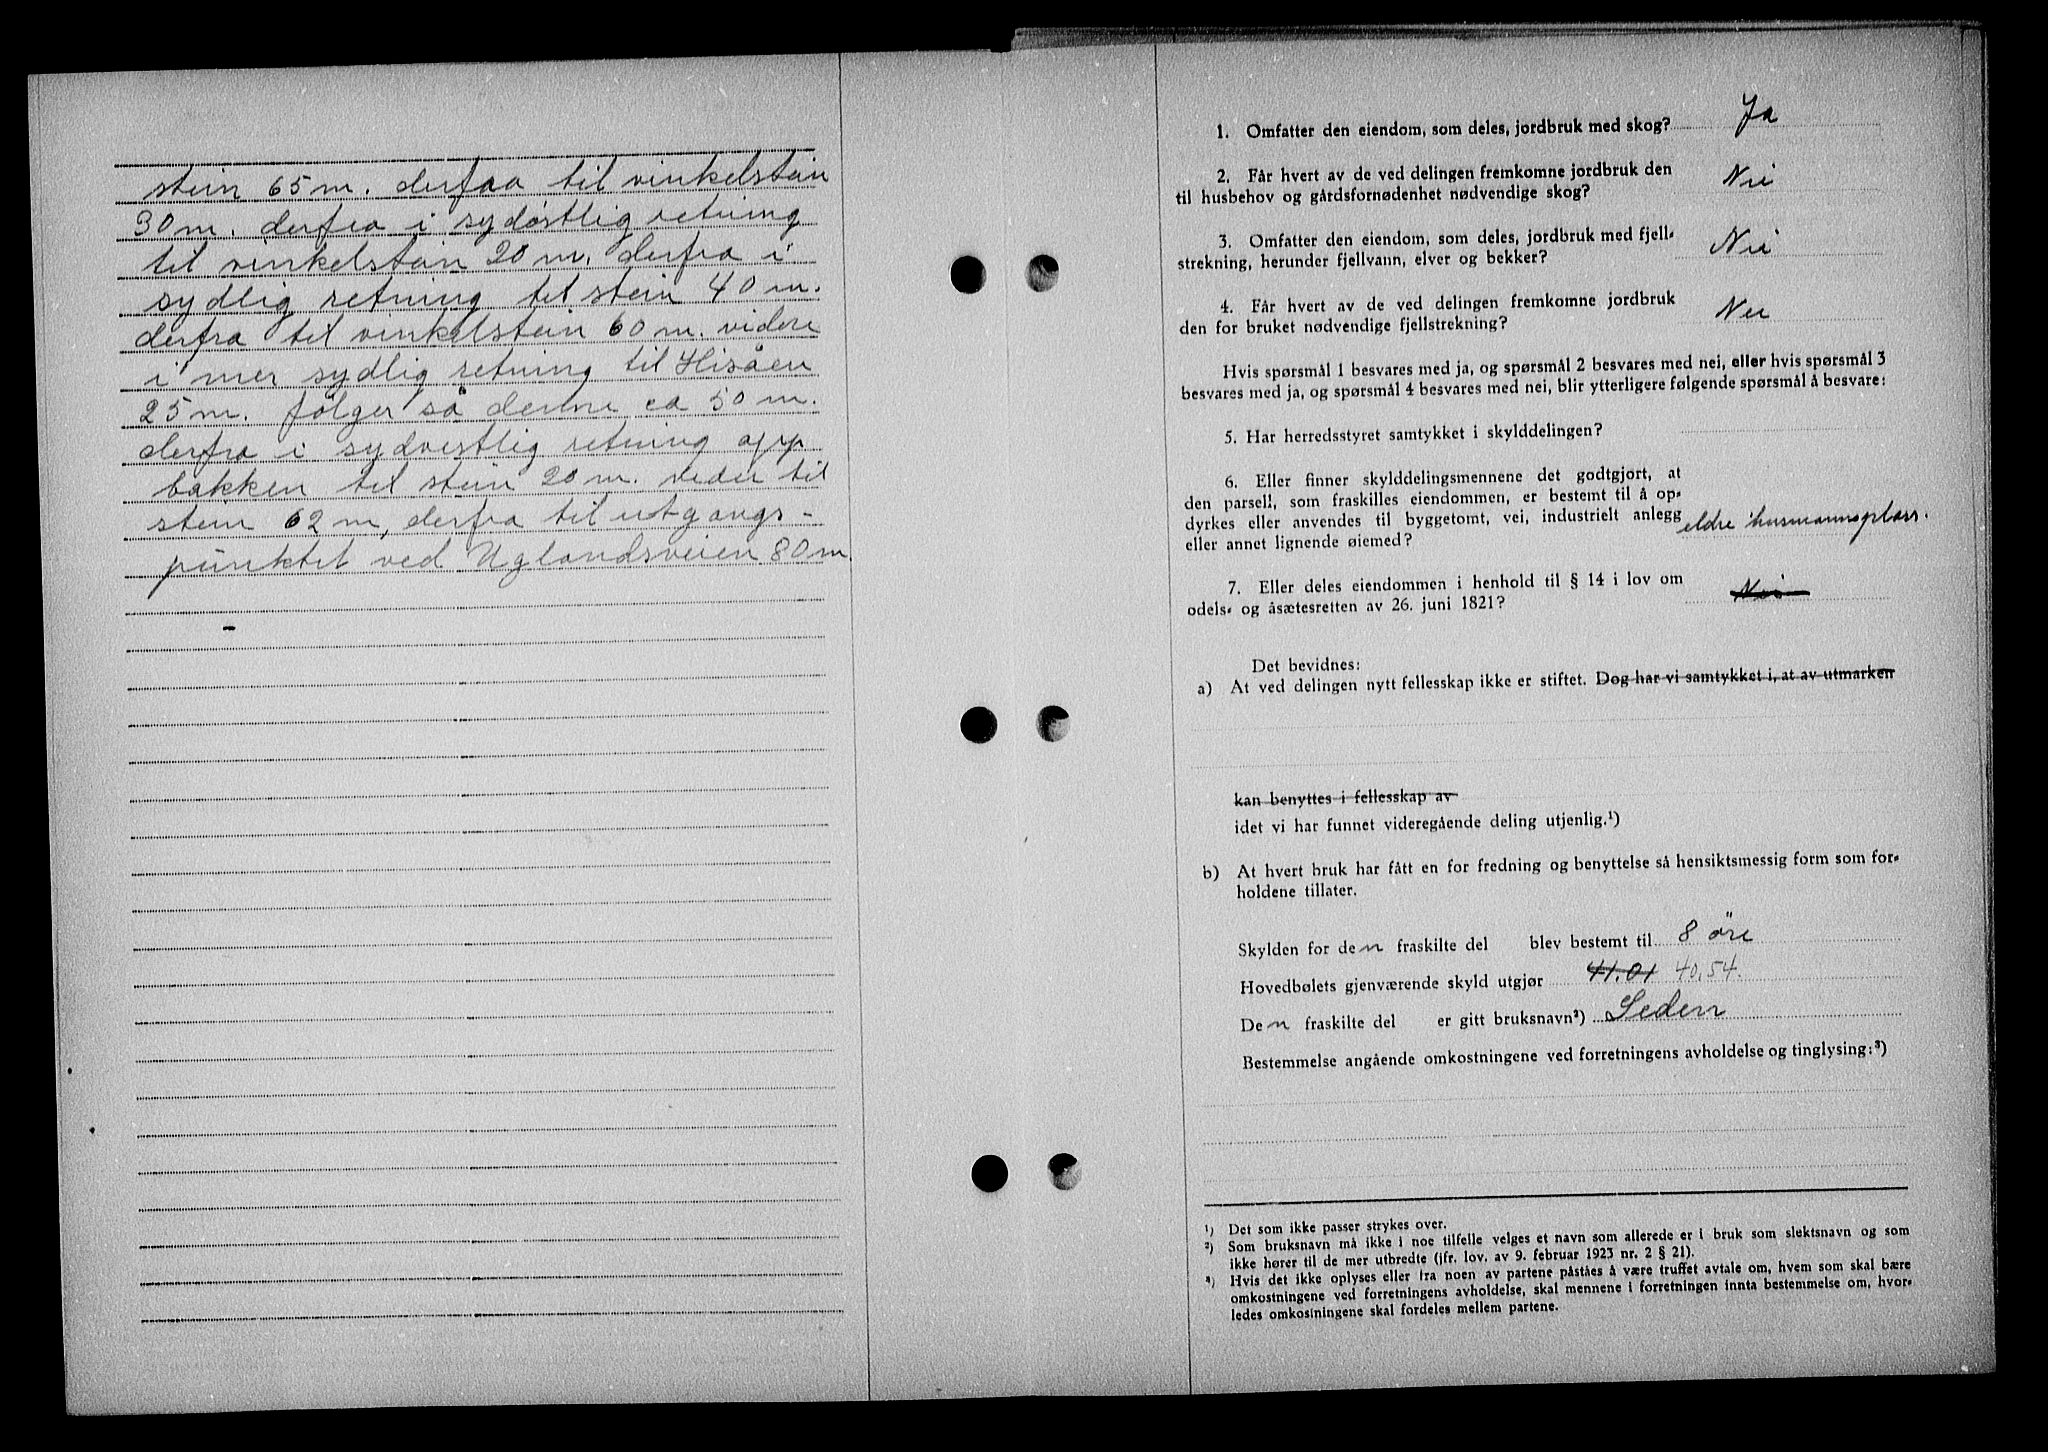 stein 65 m. derfra til vinkelstein
30 m. derfra i sydøstlig retning
til vinkelstein 20 m. derfra i
sydlig retning til stein 40 m.
derfra til vinkelstein 60 m. videre
i mer sydlig retning til Hisåen
25 m. følger så denne ca 50 m.
derfra i sydvestlig retning opp
bakken til stein 20 m. vider til
stein 62 m, derfra til utgangs-
punktet ved Uglandsveien 80 m.
1. Omfatter den eiendom, som deles, jordbruk med skog? Ja
2. Får hvert av de ved delingen fremkomne jordbruk den
til husbehov og gårdsfornødenhet nødvendige skog? Nei
3. Omfatter den eiendom, som deles, jordbruk med fjell-
strekning, herunder fjellvann, elver og bekker? Nei
4. Får hvert av de ved delingen fremkomne jordbruk
den for bruket nødvendige fjellstrekning? Nei
Hvis spørsmål 1 besvares med ja, og spørsmål 2 besvares med nei, eller hvis spørsmål 3
besvares med ja, og spørsmål 4 besvares med nei, blir ytterligere følgende spørsmål å besvare:
5. Har herredsstyret samtykket i skylddelingen?
6. Eller finner skylddelingsmennene det godtgjort, at
den parsell, som fraskilles eiendommen, er bestemt til å op-
dyrkes eller anvendes til byggetomt, vei, industrielt anlegg
eller annet lignende øiemed? eldre husmannsplass.
7. Eller deles eiendommen i henhold til § 14 i lov om
odels- og åsætesretten av 26. juni 1821? Nei
Det bevidnes:
a) At ved delingen nytt fellesskap ikke er stiftet. Dog har vi samtykket i, at av utmarken
kan benyttes i fellesskap av
idet vi har funnet videregående deling utjenlig.¹)
b) At hvert bruk har fått en for fredning og benyttelse så hensiktsmessig form som for-
holdene tillater.
Skylden for den fraskilte del blev bestemt til 8 øre
Hovedbølets gjenværende skyld utgjør 41.01 40,54.
Den fraskilte del er gitt bruksnavn²) Leden
Bestemmelse angående omkostningene ved forretningens avholdelse og tinglysing:³)
¹) Det som ikke passer strykes over.
²) Som bruksnavn må ikke i noe tilfelle velges et navn som allerede er i bruk som slektsnavn og som
ikke hører til de mer utbredte (jfr. lov. av 9. februar 1923 nr. 2 § 21).
³) Hvis det ikke oplyses eller fra noen av partene påståes å være truffet avtale om, hvem som skal bære
omkostningene ved forretningens avholdelse, skal mennene i forretningen innta bestemmelse om, hvor-
ledes omkostningene skal fordeles mellem partene.